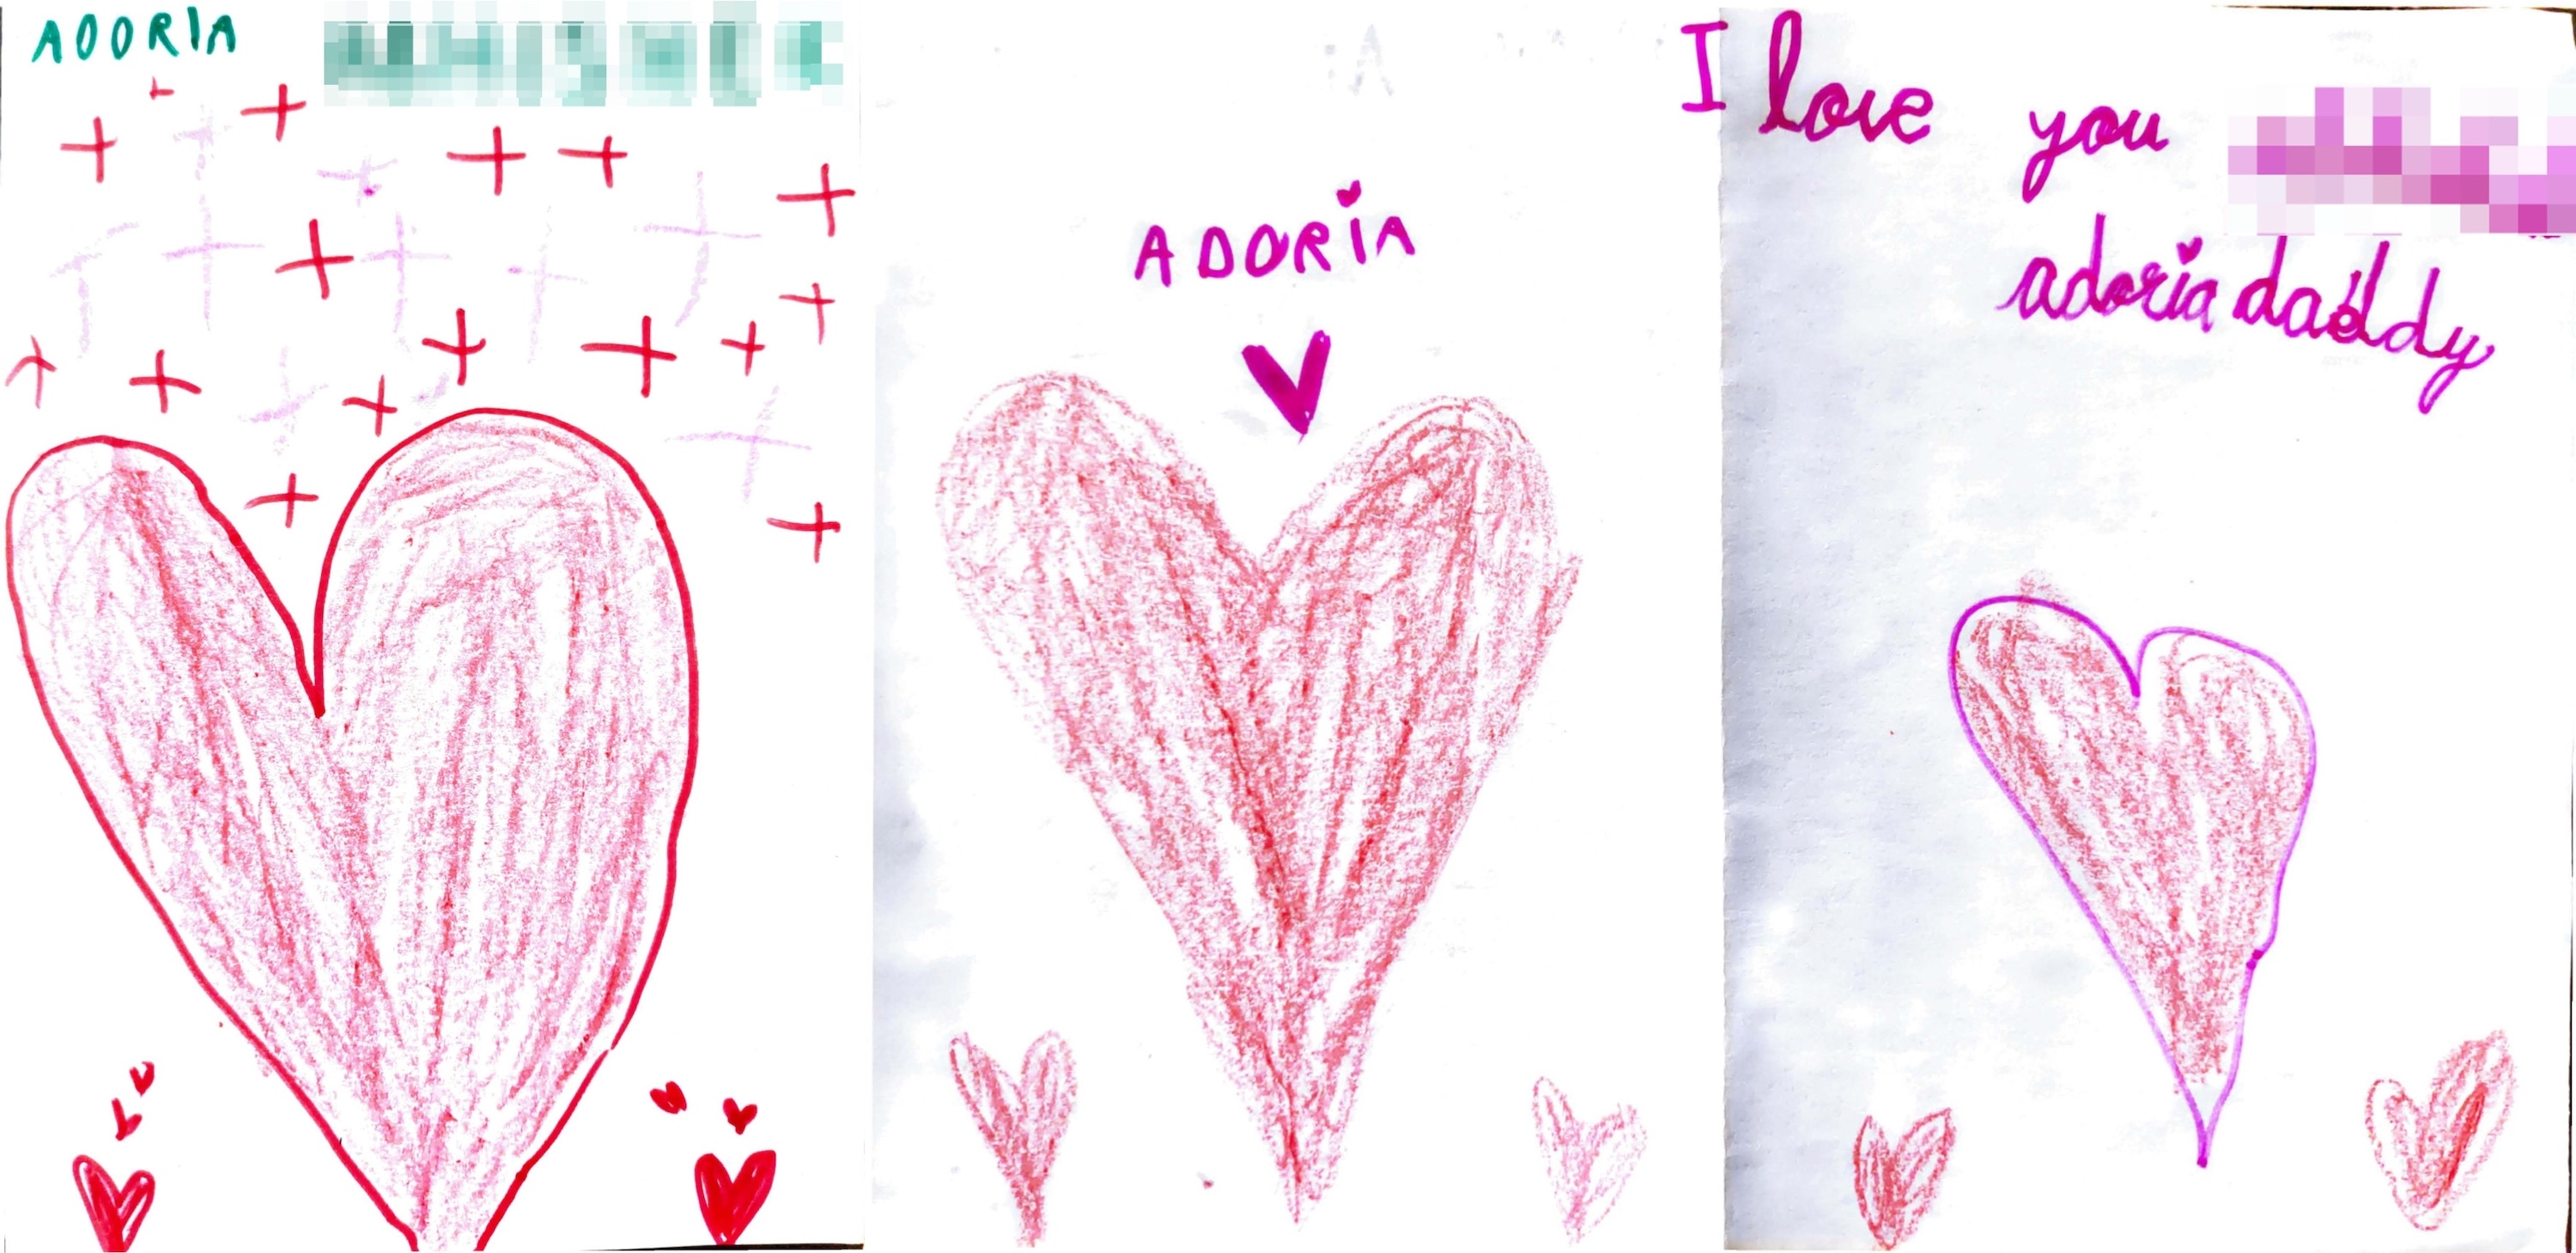 ADORIA
ADORIA
I love you
adoria daddy